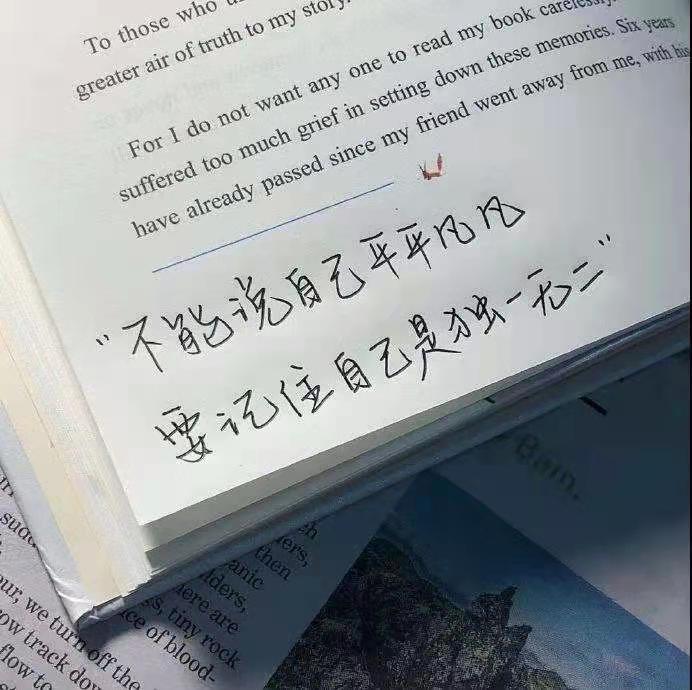 To those who
greater air of truth to my story.
For I do not want any one to read my book carelessly.
suffered too much grief in setting down these memories. Six years
have already passed since my friend went away from me, with his
“不能说自己平平凡凡
要记住自己是独一无二”
Bain.
then
anic
here are
ss, tiny rock
ice of blood-
our, we turn off the
row track dow
flow to